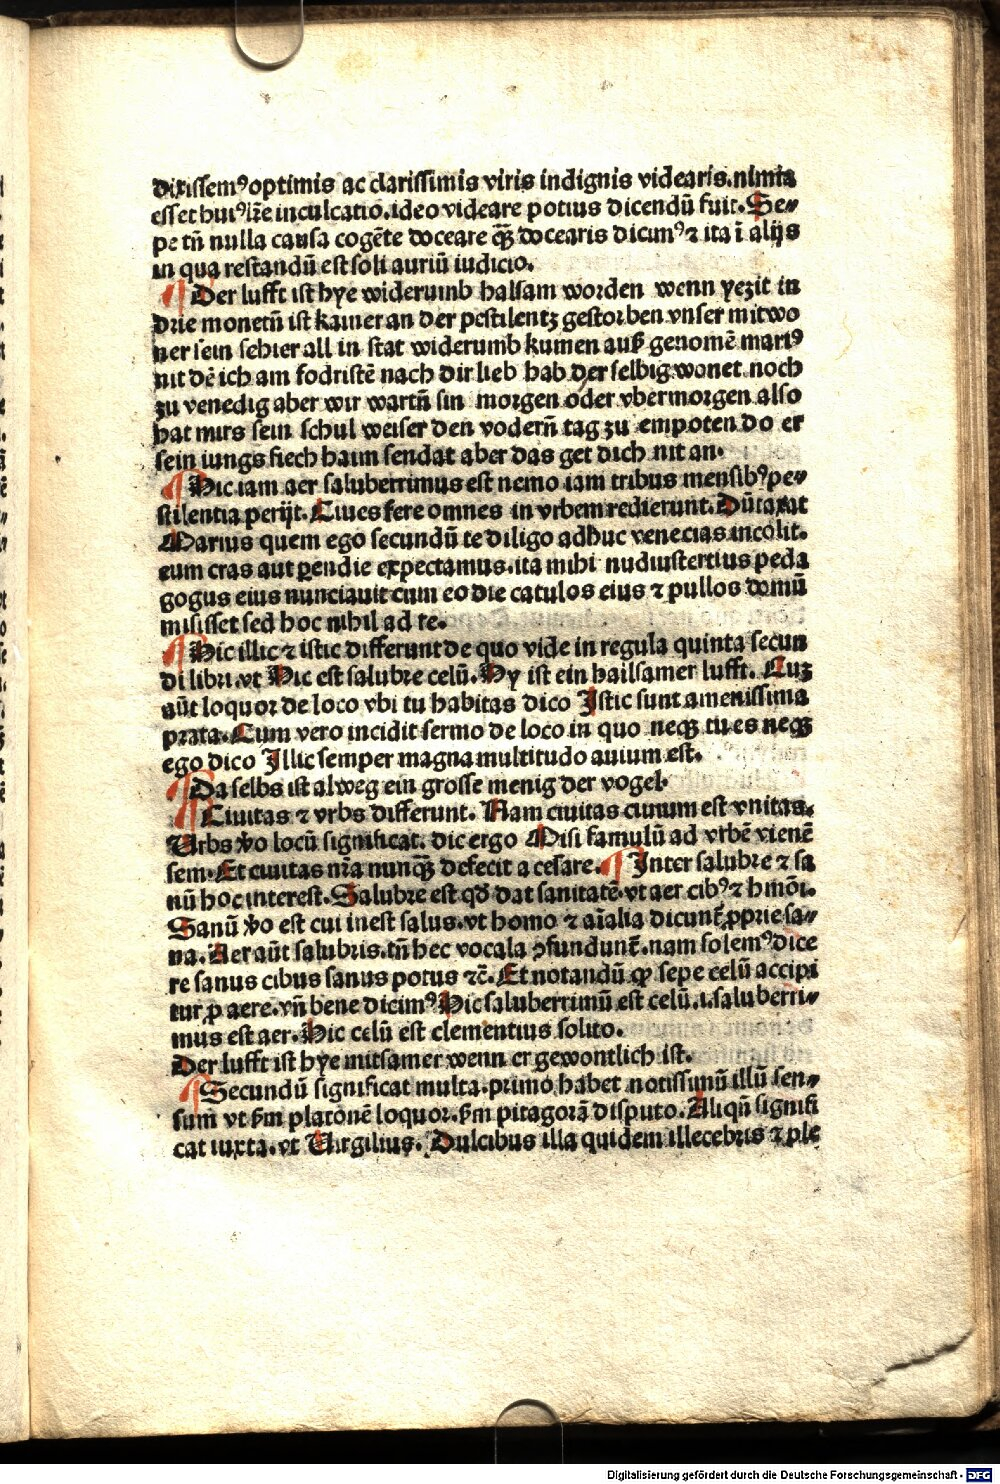 dixissemꝰ optimis ac clarissimis viris indignis videaris. nimia
esset huiꝰ lr̄e inculcatio. ideo videare potius dicendū fuit. Se⸗
pe tn̄ nulla causa cogēte doceare qͣꝫ docearis dicimꝰ ⁊ ita ī alijs
in qua restandū est soli auriū iudicio.
¶ Der lufft ist hye widerumb halsam worden wenn yezit in
drie monetn̄ ist kainer an der pestilentz gestorben vnser mitwo
ner sein schier all in stat widerumb kumen auß genomē mariꝰ
mit dē ich am fodristē nach dir lieb hab der selbig wonet noch
zu venedig aber wir wartn̄ sin morgen oder vbermorgen also
hat mirs sein schul weiser den vodern̄ tag zu empoten do er
sein iungs fiech haim sendat aber das get dich nit an.
¶ Hic iam aer saluberrimus est nemo iam tribus mensibꝰ pe⸗
stilentia perijt. Ciues fere omnes in vrbem redierunt. Dūtaxat
Marius quem ego secundū te diligo adhuc venecias incolit.
eum cras aut ꝑendie expectamus. ita mihi nudiustertius peda
gogus eius nunciauit cum eo die catulos eius ⁊ pullos domū
misisset sed hoc nihil ad te.
¶ Hic illic ⁊ istic differunt de quo vide in regula quinta secun
di libri. vt Hic est salubre celū. Hy ist ein hailsamer lufft. Cuꝫ
aūt loquor de loco vbi tu habitas dico Istic sunt amenissima
prata. Cum vero incidit sermo de loco in quo neqꝫ tu es neqꝫ
ego dico Illic semper magna multitudo auium est.
¶ Da selbs ist alweg ein grosse menig der vogel.
¶ Ciuitas ⁊ vrbs differunt. Nam ciuitas ciuium est vnitas.
Urbs v̄o locū significat. dic ergo Misi famulū ad vrbē vienē
sem. Et ciuitas nr̄a nunqͣꝫ defecit a cesare. ¶ Inter salubre ⁊ sa
nū hoc interest. Salubre est qd̄ dat sanitatē. vt aer cibꝰ ⁊ hmōi.
Sanū v̄o est cui inest salus. vt homo ⁊ aīalia dicunt̄ ꝓprie sa⸗
na. Aer aūt salubris. tn̄ hec vocala ꝯfundunt̄. nam solemꝰ dice
re sanus cibus sanus potus ⁊c̄. Et notandū ꝙ sepe celū accipi
tur ꝓ aere. vn̄ bene dicimꝰ Hic saluberrimū est celū. i. saluberri⸗
mus est aer. Hic celū est clementius solito.
Der lufft ist hye mitsamer wenn er gewontlich ist.
¶ Secundū significat multa. primo habet notissimū illū sen⸗
sum vt ẜm platonē loquor. ẜm pitagorā disputo. Aliqn̄ signifi
cat iuxta. vt Uirgilius. Dulcibus illa quidem illecebris ⁊ ple
Digitalisierung gefördert durch die Deutsche Forschungsgemeinschaft - DFG